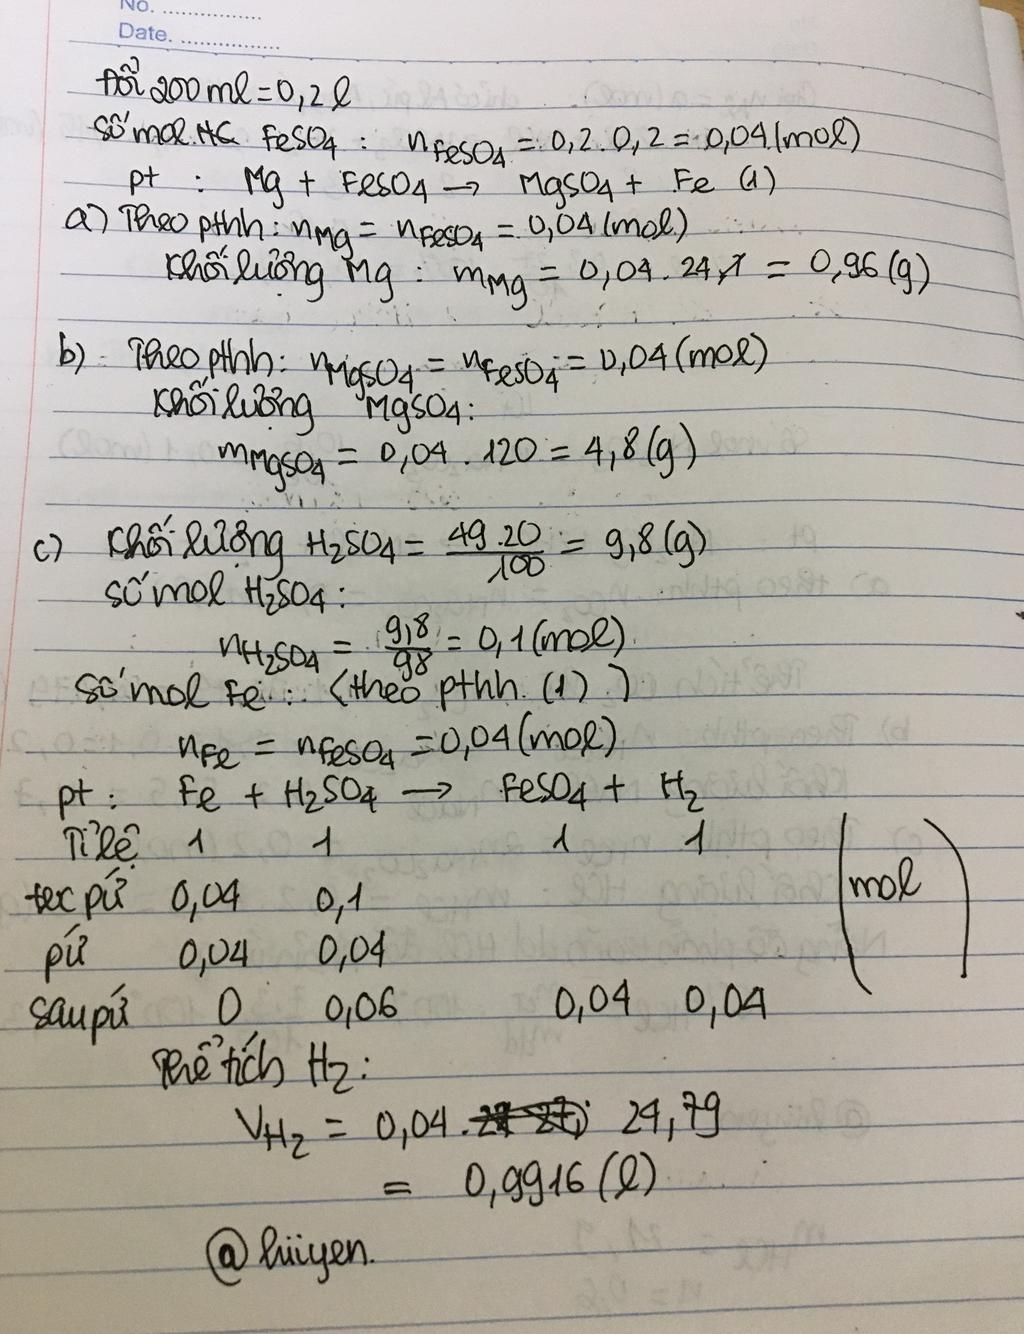 No. ...............
Date. ...............
Đổi 200 ml = 0,2 l
Số mol FeSO4 : nFeSO4 = 0,2 . 0,2 = 0,04 (mol)
pt : Mg + FeSO4 → MgSO4 + Fe (1)
a) Theo pthh : nMg = nFeSO4 = 0,04 (mol)
Khối lượng Mg : mMg = 0,04 . 24 = 0,96 (g)
b) Theo pthh: nMgSO4 = nFeSO4 = 0,04 (mol)
Khối lượng MgSO4:
mMgSO4 = 0,04 . 120 = 4,8 (g)
c) Khối lượng H2SO4 = 49.20/100 = 9,8 (g)
số mol H2SO4 :
nH2SO4 = 9,8/98 = 0,1 (mol)
Số mol Fe : (theo pthh (1))
nFe = nFeSO4 = 0,04 (mol)
pt : Fe + H2SO4 → FeSO4 + H2
Tỉ lệ 1 1 1 1
pứ 0,04 0,1 (mol)
pứ 0,04 0,04
sau pứ 0 0,06 0,04 0,04
Thể tích H2 :
VH2 = 0,04 . 24,79
= 0,9916 (l)
@hiiyen.